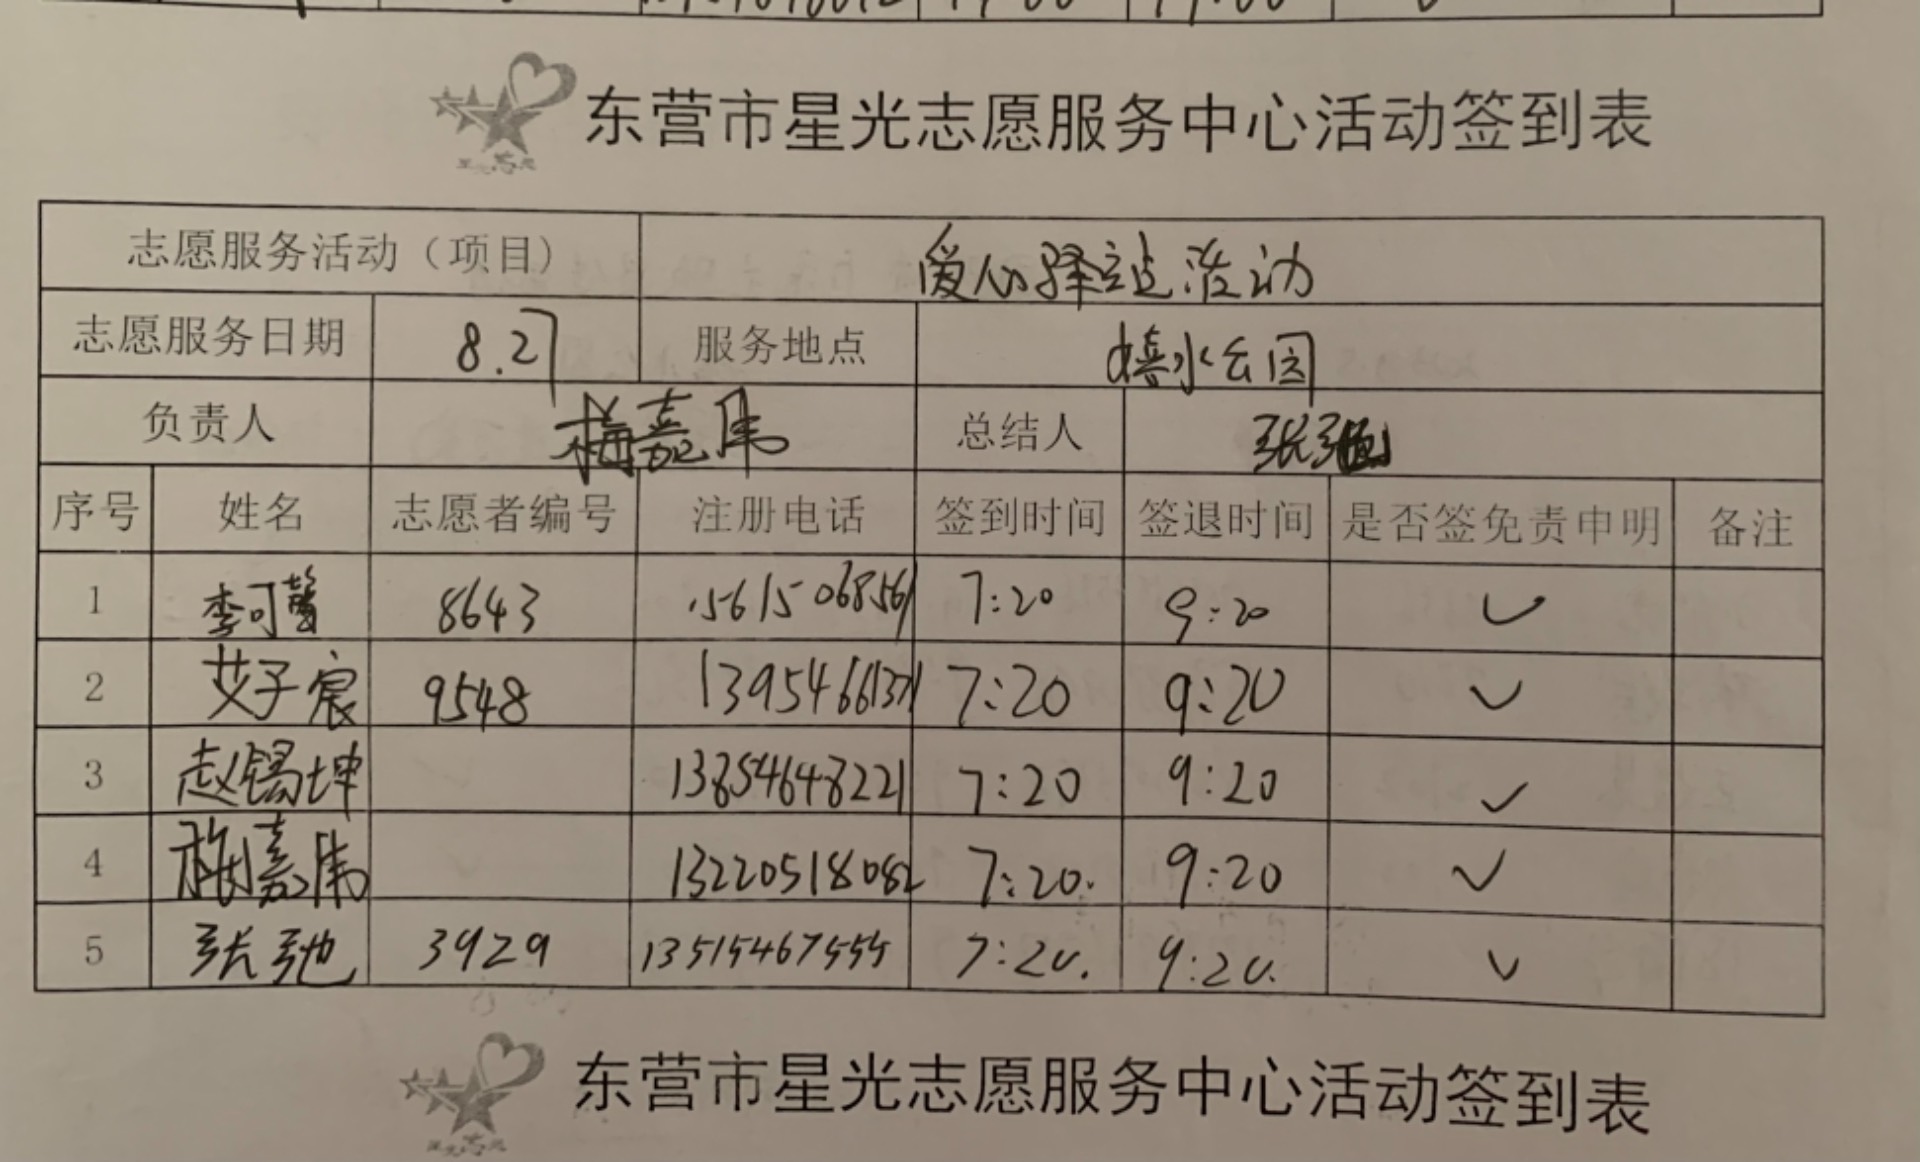 东营市星光志愿服务中心活动签到表
志愿服务活动（项目） 爱心驿站活动
志愿服务日期 8.27 服务地点 水公园
负责人 梅嘉伟 总结人 张弛
序号 姓名 志愿者编号 注册电话 签到时间 签退时间 是否签免责申明 备注
1 李可馨 8643 15615068561 7:20 9:20 ✓
2 艾子宸 9548 7:20 9:20 ✓
3 赵锡坤 13854648221 7:20 9:20 ✓
4 梅嘉伟 13220518082 7:20. 9:20 ✓
5 张弛 3929 13515467555 7:20. 9:20. ✓
东营市星光志愿服务中心活动签到表